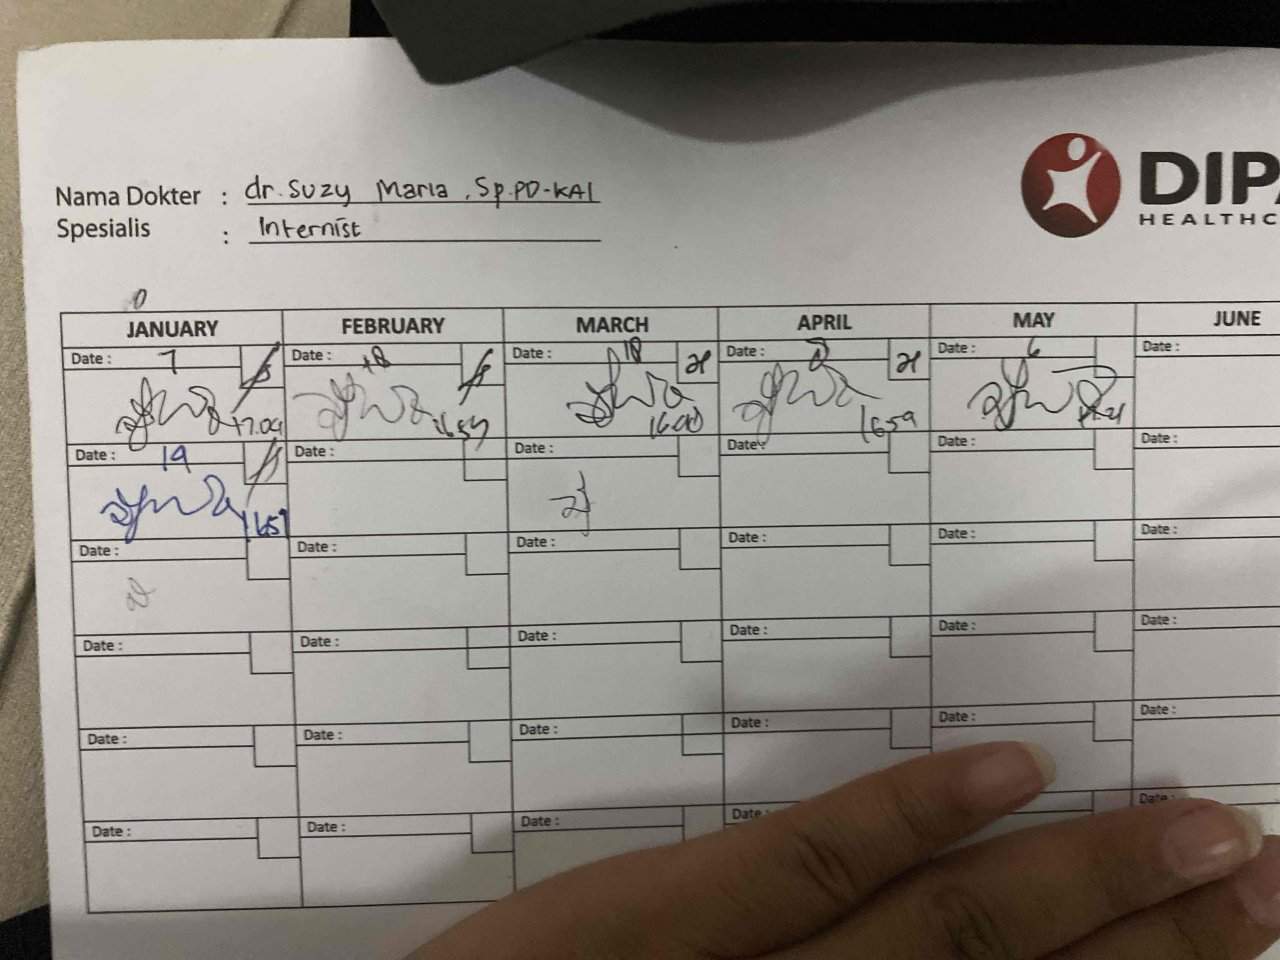 Nama Dokter : dr. Suzy Maria, Sp.PD-KAI
Spesialis : Internist
DIP
HEALTHC
JANUARY FEBRUARY MARCH APRIL MAY JUNE
Date : 7 Date : 18 Date : 18 Date : Date : 6 Date :
17.09 1600 1659
Date : 19 Date : Date : Date : Date : Date :
1657
Date : Date : Date : Date : Date : Date :
Date : Date : Date : Date : Date : Date :
Date : Date : Date : Date : Date : Date :
Date : Date : Date : Date : Date :